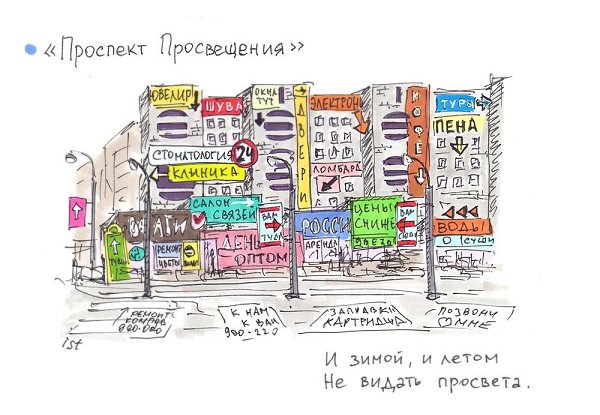 «Проспект Просвещения»
ЮВЕЛИР
ШУБА
ОКНА
ТУТ
ДВЕРИ
ЭЛЕКТРОНИ
КОФЕ
ТУРЫ
ПЕНА
СТОМАТОЛОГИЯ 24
КЛИНИКА
ЛОМБАРД
САЛОН
СВЯЗЕЙ
ВАМ
ТУДА
ЦЕНЫ
СНИЖЕ
ЗВЕЗДЫ
ВАМ
СЮДА
АТИ
РОССИ
ВОДЫ
СУШИ
РЕМОНТ
ЦВЕТЫ
ДЕНЬ
ОПТОМ
АРЕНДА
РЕМОНТ
КОМПОВ
900-000
К НАМ
К ВАМ
900-220
ЗАПРАВКИ
КАРТРИДЖА
ПОЗВОНИ
МНЕ
ist
И зимой, и летом
Не видать просвета.